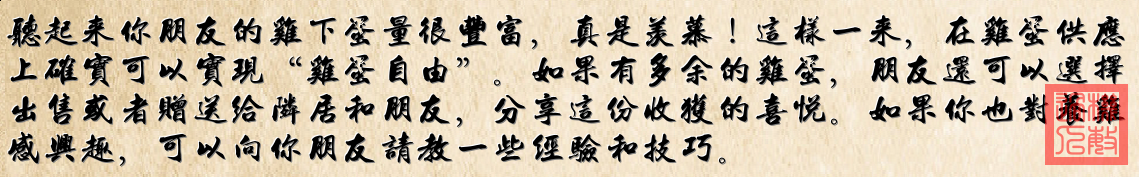 聽起来你朋友的雞下蛋量很豐富，真是羡慕！這樣一来，在雞蛋供應
上確實可以實現“雞蛋自由”。如果有多余的雞蛋，朋友還可以選擇
出售或者贈送給隣居和朋友，分享這份收獲的喜悦。如果你也對養雞
感興趣，可以向你朋友請教一些經驗和技巧。